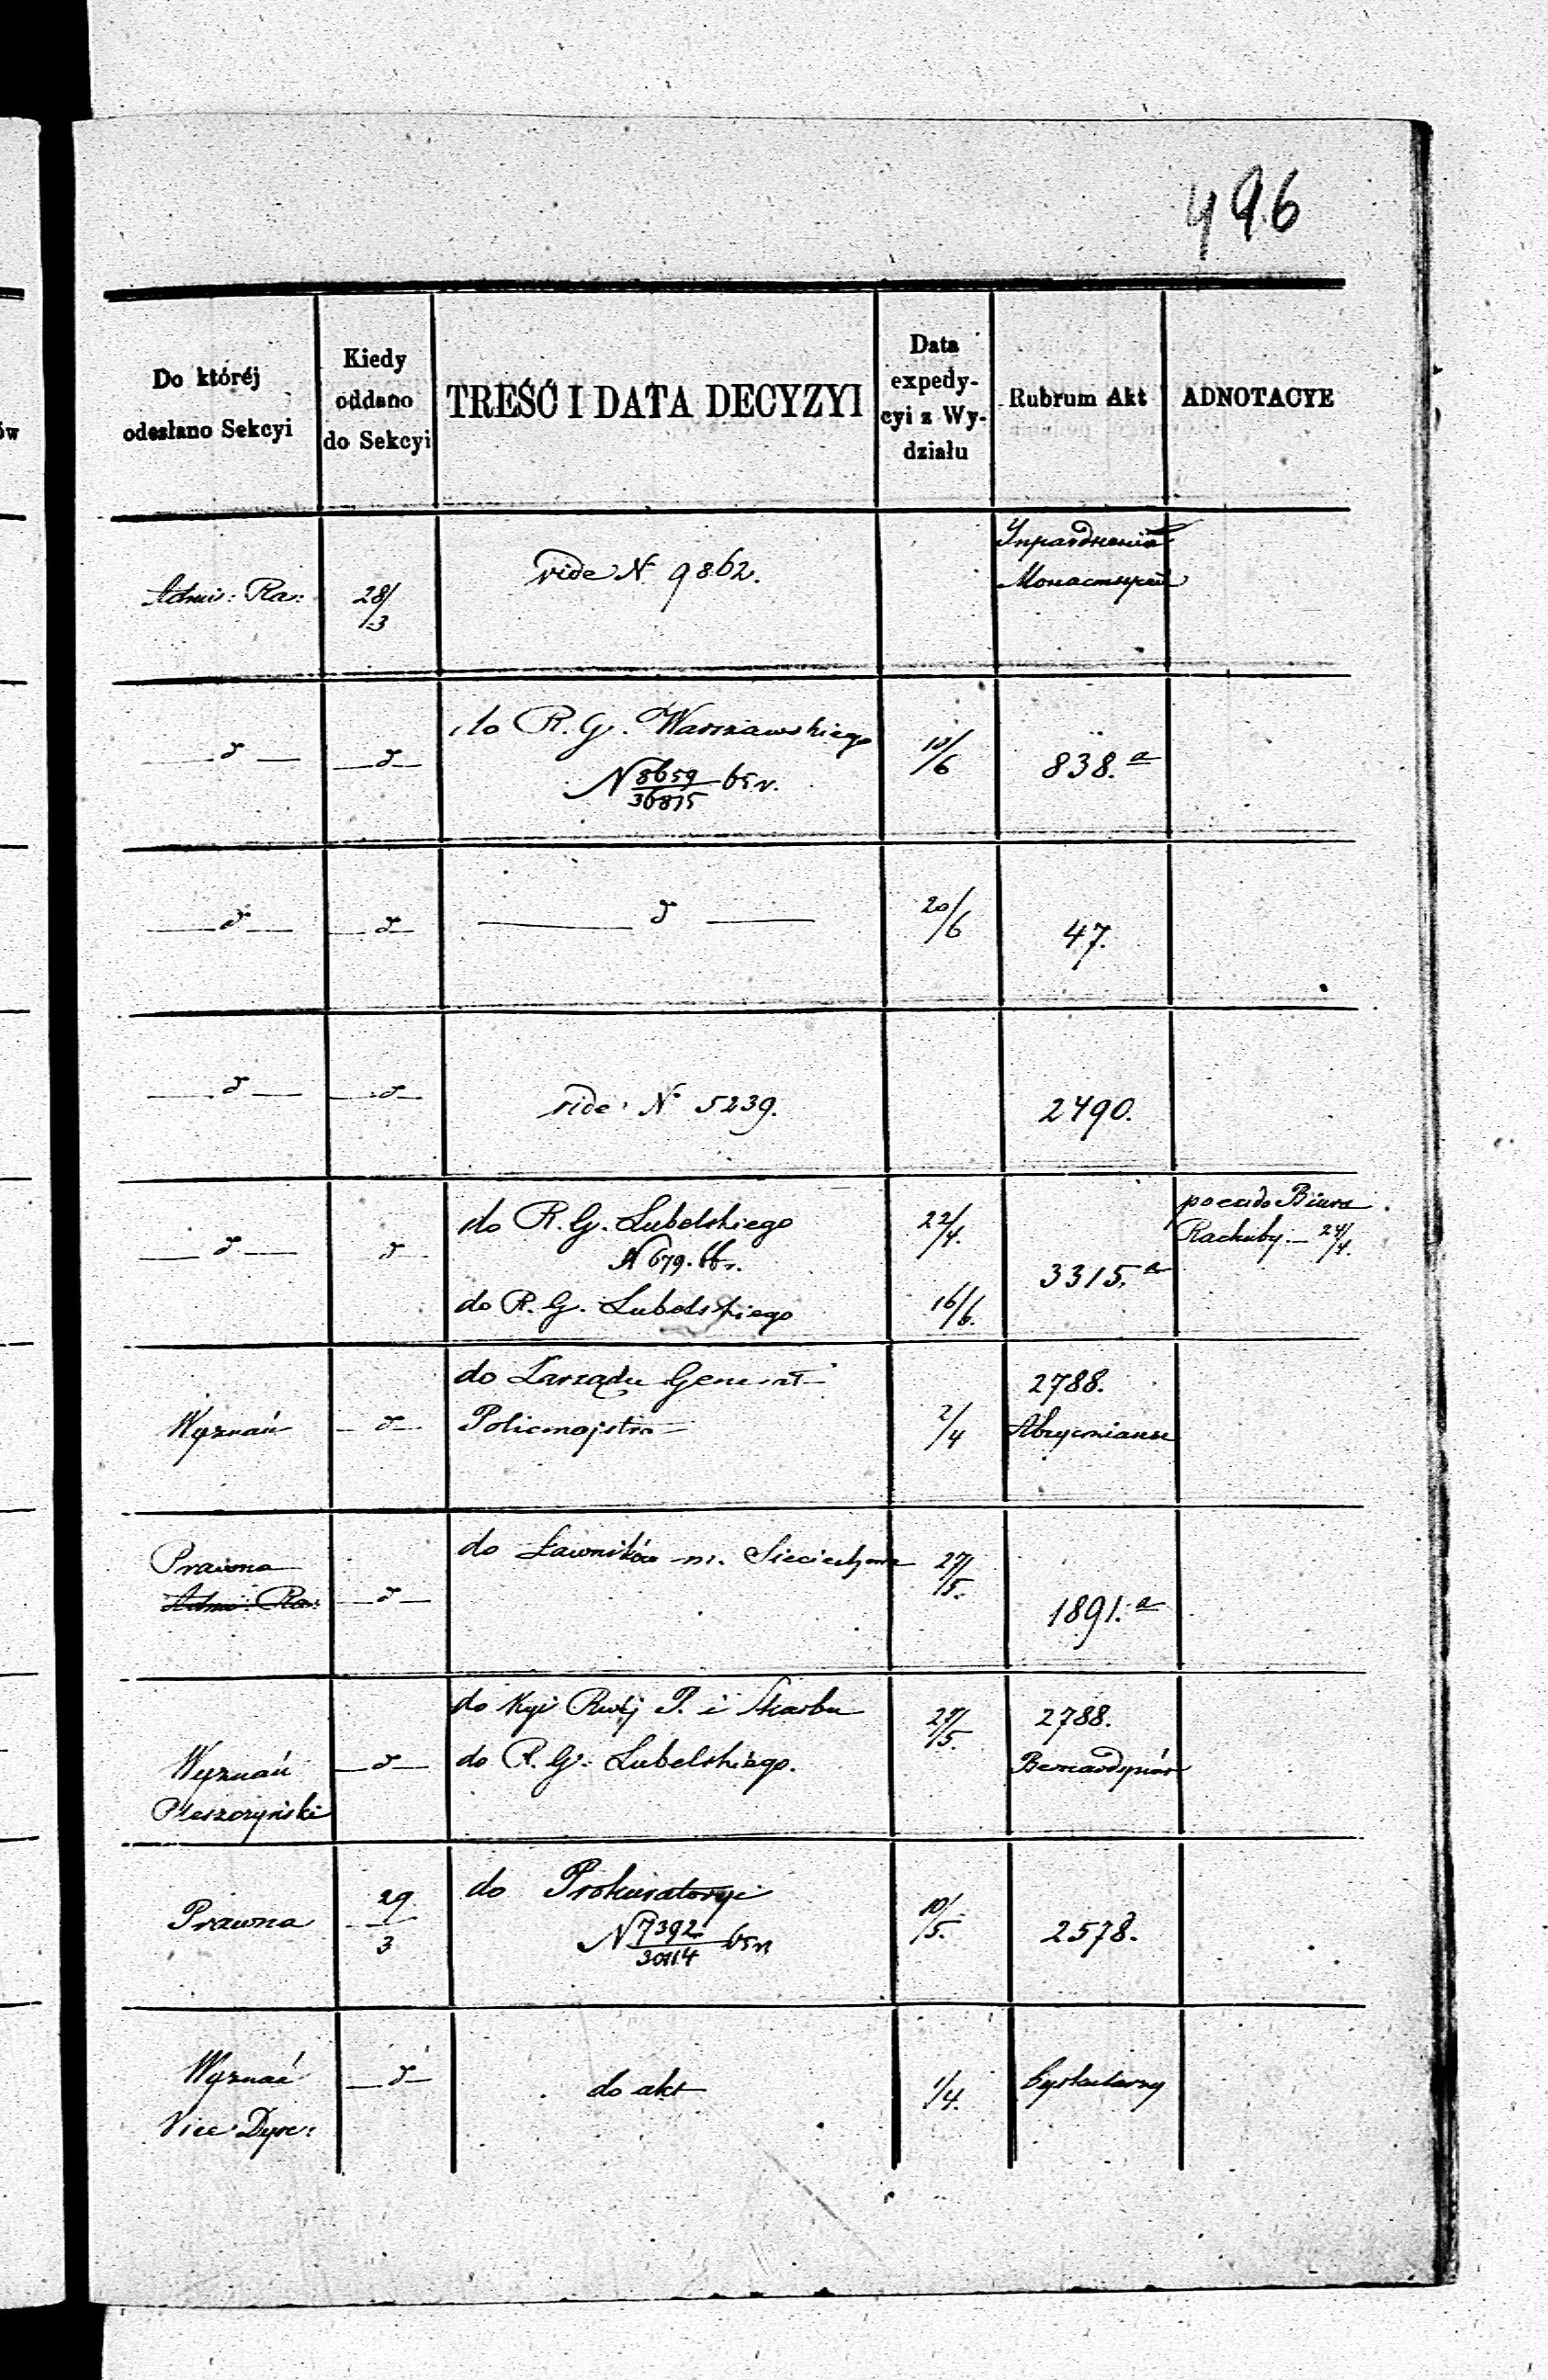 496
ów
Do któréj
odesłano Sekcyi
Kiedy
oddano
do Sekcyi
TREŚĆ I DATA DECYZYI
Data
expedy-
cyi z Wy-
działu
Rubrum Akt
ADNOTACYE
Admi: Ra:
28/3
vide N. 9862.
Упразднения
Монастырей
— d —
— d —
do R. G. Warszawskiego
N 8659/36815
10/6
838. a
— d —
— d —
— d —
20/6
47.
— d —
— d —
vide N 5239.
2490.
— d —
d
do R. G. Lubelskiego
N 679.
do R. G. Lubelskiego
22/4.
16/6.
3315. a
Biura
Rachuby — 24/4.
Wyznań
— d —
do Zarządu Generał
Policmajstra
2/4
2788.
Prawna
Admi: Ra:
— d —
do Ławników m. Sieciechowa
27/5.
1891. a
Wyznań
Pleszczyński
— d —
do Kyi Rwéj P. i Skarbu
do R. G. Lubelskiego.
27/5.
2788.
Bernardynów
Prawna
29/3
do Prokuratoryi
N 7392/30114
10/5.
2578.
Wyznań
Vice Dyre:
— d —
do akt
1/4.